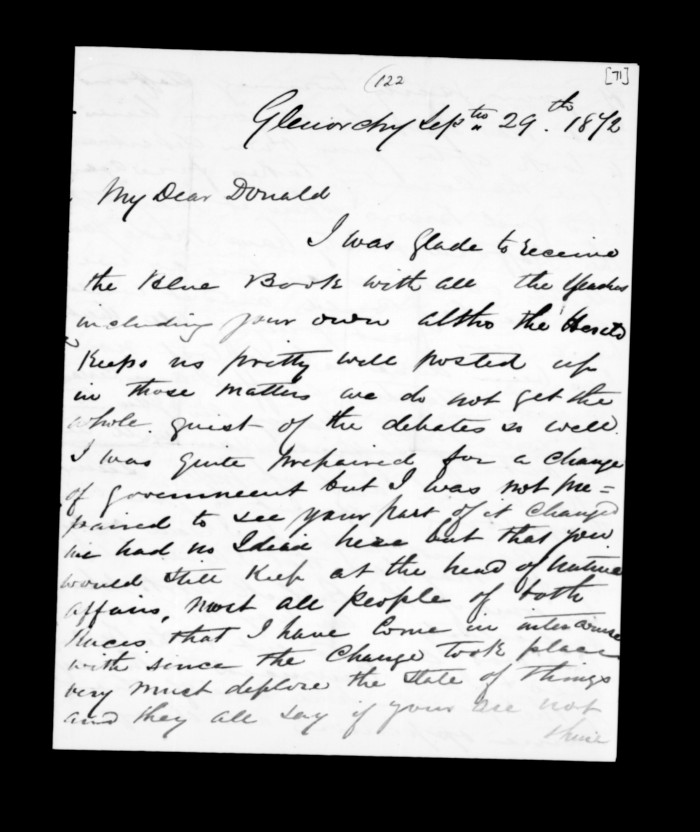 (122
[71]
Glenorchy Septm 29th 1872
My Dear Donald
I was glade to receive
the Blue Book with all the
including your own altho the
Keeps us pretty well posted up
in those matters we do not get the
whole guist of the debates so well.
I was quite prepaired for a change
of government but I was not pre=
paired to see your part of it changed
we had no Idead here but that you
would still keep at the head of native
affairs, most all people of both
Races that I have come in intercourse
with since the change took place
very must deplore the state of things
and they all say if your are not
there